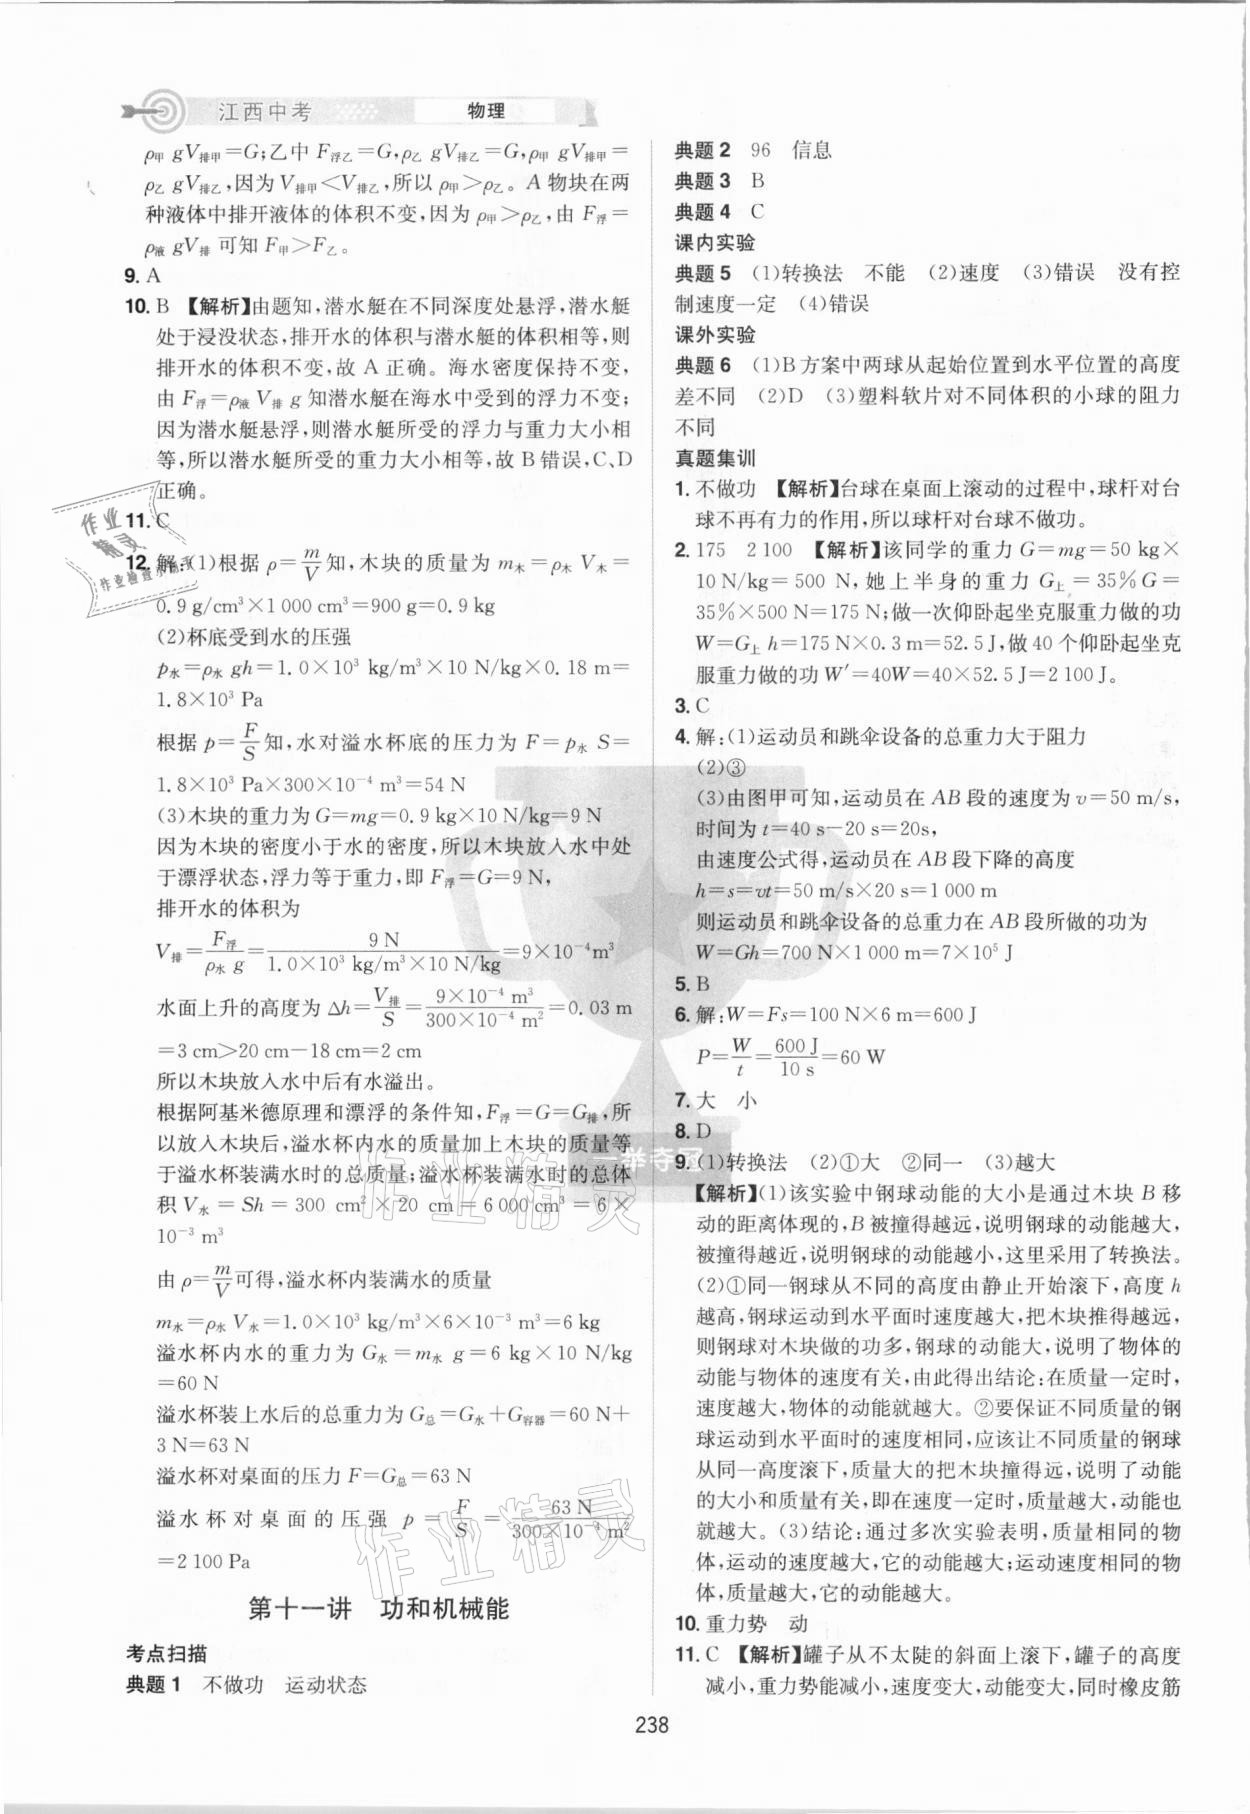 江西中考 物理
ρ甲 gV排甲=G;乙中 F浮乙=G,ρ乙 gV排乙=G,ρ甲 gV排甲=
ρ乙 gV排乙,因为 V排甲<V排乙,所以 ρ甲>ρ乙。A 物块在两
种液体中排开液体的体积不变,因为 ρ甲>ρ乙,由 F浮=
ρ液 gV排 可知 F甲>F乙。
9. A
10. B 【解析】由题知,潜水艇在不同深度处悬浮,潜水艇
处于浸没状态,排开水的体积与潜水艇的体积相等,则
排开水的体积不变,故 A 正确。海水密度保持不变,
由 F浮=ρ液 V排 g 知潜水艇在海水中受到的浮力不变;
因为潜水艇悬浮,则潜水艇所受的浮力与重力大小相
等,所以潜水艇所受的重力大小相等,故 B 错误,C、D
正确。
11. C
12. 解:(1)根据 ρ=m/V知,木块的质量为 m木=ρ木 V木=
0.9 g/cm³×1 000 cm³=900 g=0.9 kg
(2)杯底受到水的压强
p水=ρ水 gh=1.0×10³ kg/m³×10 N/kg×0.18 m=
1.8×10³ Pa
根据 p=F/S知,水对溢水杯底的压力为 F=p水 S=
1.8×10³ Pa×300×10⁻⁴ m³=54 N
(3)木块的重力为 G=mg=0.9 kg×10 N/kg=9 N
因为木块的密度小于水的密度,所以木块放入水中处
于漂浮状态,浮力等于重力,即 F浮=G=9 N,
排开水的体积为
V排=F浮/ρ水 g=9 N/1.0×10³ kg/m³×10 N/kg=9×10⁻⁴m³
水面上升的高度为 Δh=V排/S=9×10⁻⁴ m³/300×10⁻⁴ m²=0.03 m
=3 cm>20 cm-18 cm=2 cm
所以木块放入水中后有水溢出。
根据阿基米德原理和漂浮的条件知,F浮=G=G排,所
以放入木块后,溢水杯内水的质量加上木块的质量等
于溢水杯装满水时的总质量;溢水杯装满水时的总体
积 V水 = Sh = 300 cm²×20 cm = 6 000 cm³ = 6×
10⁻³ m³
由 ρ=m/V可得,溢水杯内装满水的质量
m水=ρ水 V水=1.0×10³ kg/m³×6×10⁻³ m³=6 kg
溢水杯内水的重力为 G水=m水 g=6 kg×10 N/kg
=60 N
溢水杯装上水后的总重力为 G总=G水+G容器=60 N+
3 N=63 N
溢水杯对桌面的压力 F=G总=63 N
溢水杯对桌面的压强 p = F/S = 63 N/300×10⁻⁴ m²
=2 100 Pa
第十一讲 功和机械能
考点扫描
典题 1 不做功 运动状态
典题 2 96 信息
典题 3 B
典题 4 C
课内实验
典题 5 (1)转换法 不能 (2)速度 (3)错误 没有控
制速度一定 (4)错误
课外实验
典题 6 (1)B 方案中两球从起始位置到水平位置的高度
差不同 (2)D (3)塑料软片对不同体积的小球的阻力
不同
真题集训
1. 不做功 【解析】台球在桌面上滚动的过程中,球杆对台
球不再有力的作用,所以球杆对台球不做功。
2. 175 2 100 【解析】该同学的重力 G=mg=50 kg×
10 N/kg=500 N,她上半身的重力 G上=35%G=
35%×500 N=175 N;做一次仰卧起坐克服重力做的功
W=G上 h=175 N×0.3 m=52.5 J,做 40 个仰卧起坐克
服重力做的功 W′=40W=40×52.5 J=2 100 J。
3. C
4. 解:(1)运动员和跳伞设备的总重力大于阻力
(2)③
(3)由图甲可知,运动员在 AB 段的速度为 v=50 m/s,
时间为 t=40 s-20 s=20s,
由速度公式得,运动员在 AB 段下降的高度
h=s=vt=50 m/s×20 s=1 000 m
则运动员和跳伞设备的总重力在 AB 段所做的功为
W=Gh=700 N×1 000 m=7×10⁵ J
5. B
6. 解:W=Fs=100 N×6 m=600 J
P=W/t=600 J/10 s=60 W
7. 大 小
8. D
9. (1)转换法 (2)①大 ②同一 (3)越大
【解析】(1)该实验中钢球动能的大小是通过木块 B 移
动的距离体现的,B 被撞得越远,说明钢球的动能越大,
被撞得越近,说明钢球的动能越小,这里采用了转换法。
(2)①同一钢球从不同的高度由静止开始滚下,高度 h
越高,钢球运动到水平面时速度越大,把木块推得越远,
则钢球对木块做的功多,钢球的动能大,说明了物体的
动能与物体的速度有关,由此得出结论:在质量一定时,
速度越大,物体的动能就越大。②要保证不同质量的钢
球运动到水平面时的速度相同,应该让不同质量的钢球
从同一高度滚下,质量大的把木块撞得远,说明了动能
的大小和质量有关,即在速度一定时,质量越大,动能也
就越大。(3)结论:通过多次实验表明,质量相同的物
体,运动的速度越大,它的动能越大;运动速度相同的物
体,质量越大,它的动能越大。
10. 重力势 动
11. C 【解析】罐子从不太陡的斜面上滚下,罐子的高度
减小,重力势能减小,速度变大,动能变大,同时橡皮筋
238
作业精灵
作业检查小
一举夺冠
作业精灵
作业精灵